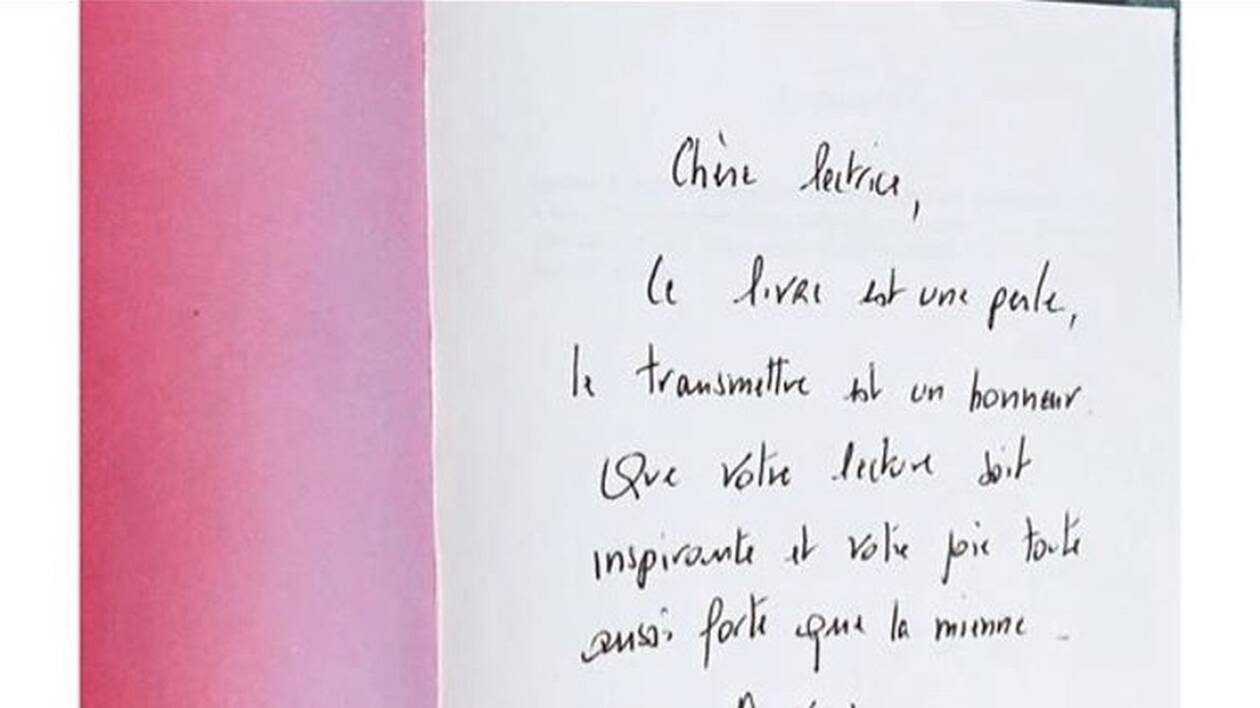 Chère lectrice,
Ce livre est une perle,
le transmettre est un honneur.
Que votre lecture soit
inspirante et votre joie toute
aussi forte que la mienne.